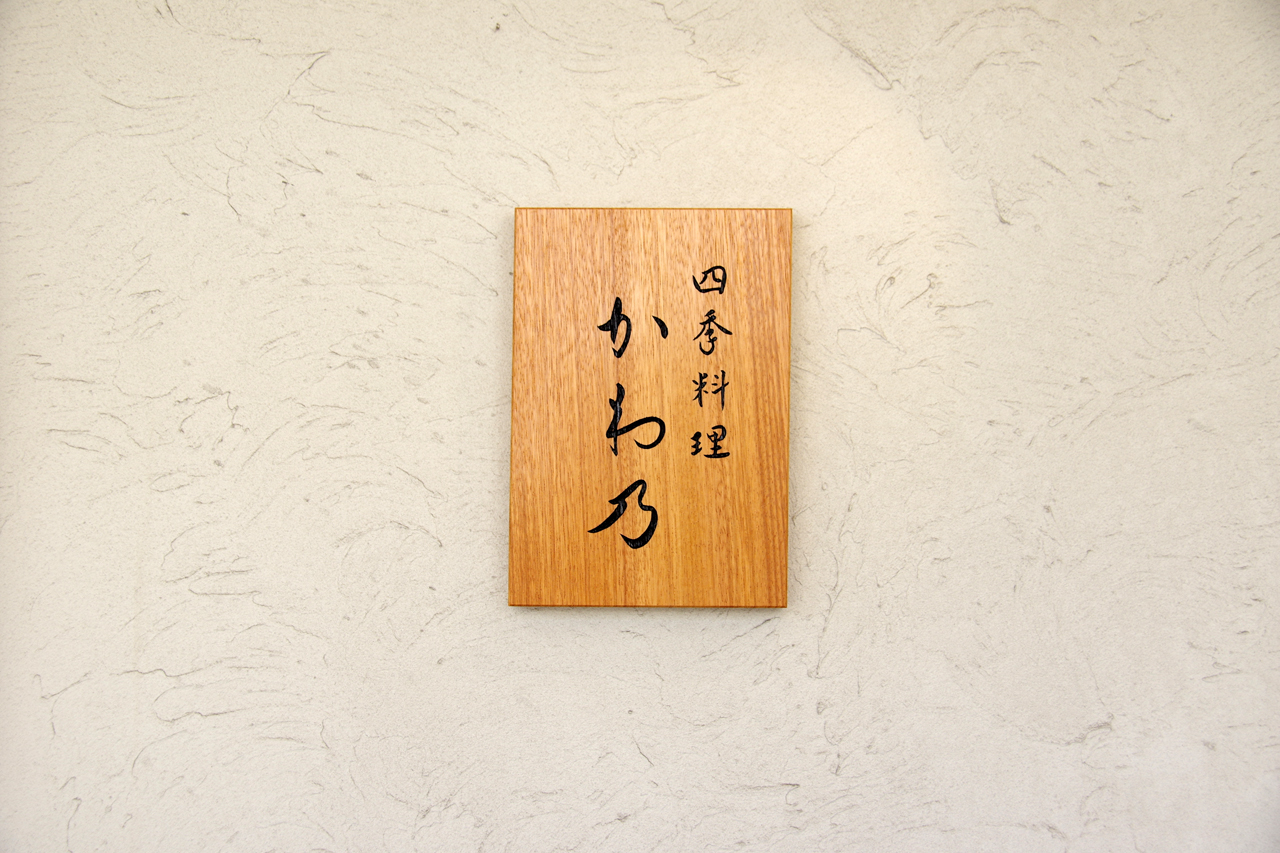 四季料理
かわ乃